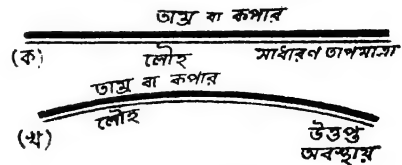 তাম্র বা কপার
(ক) লৌহ সাধারণ তাপমাত্রা
তাম্র বা কপার
লৌহ
(খ) উত্তপ্ত
অবস্থায়